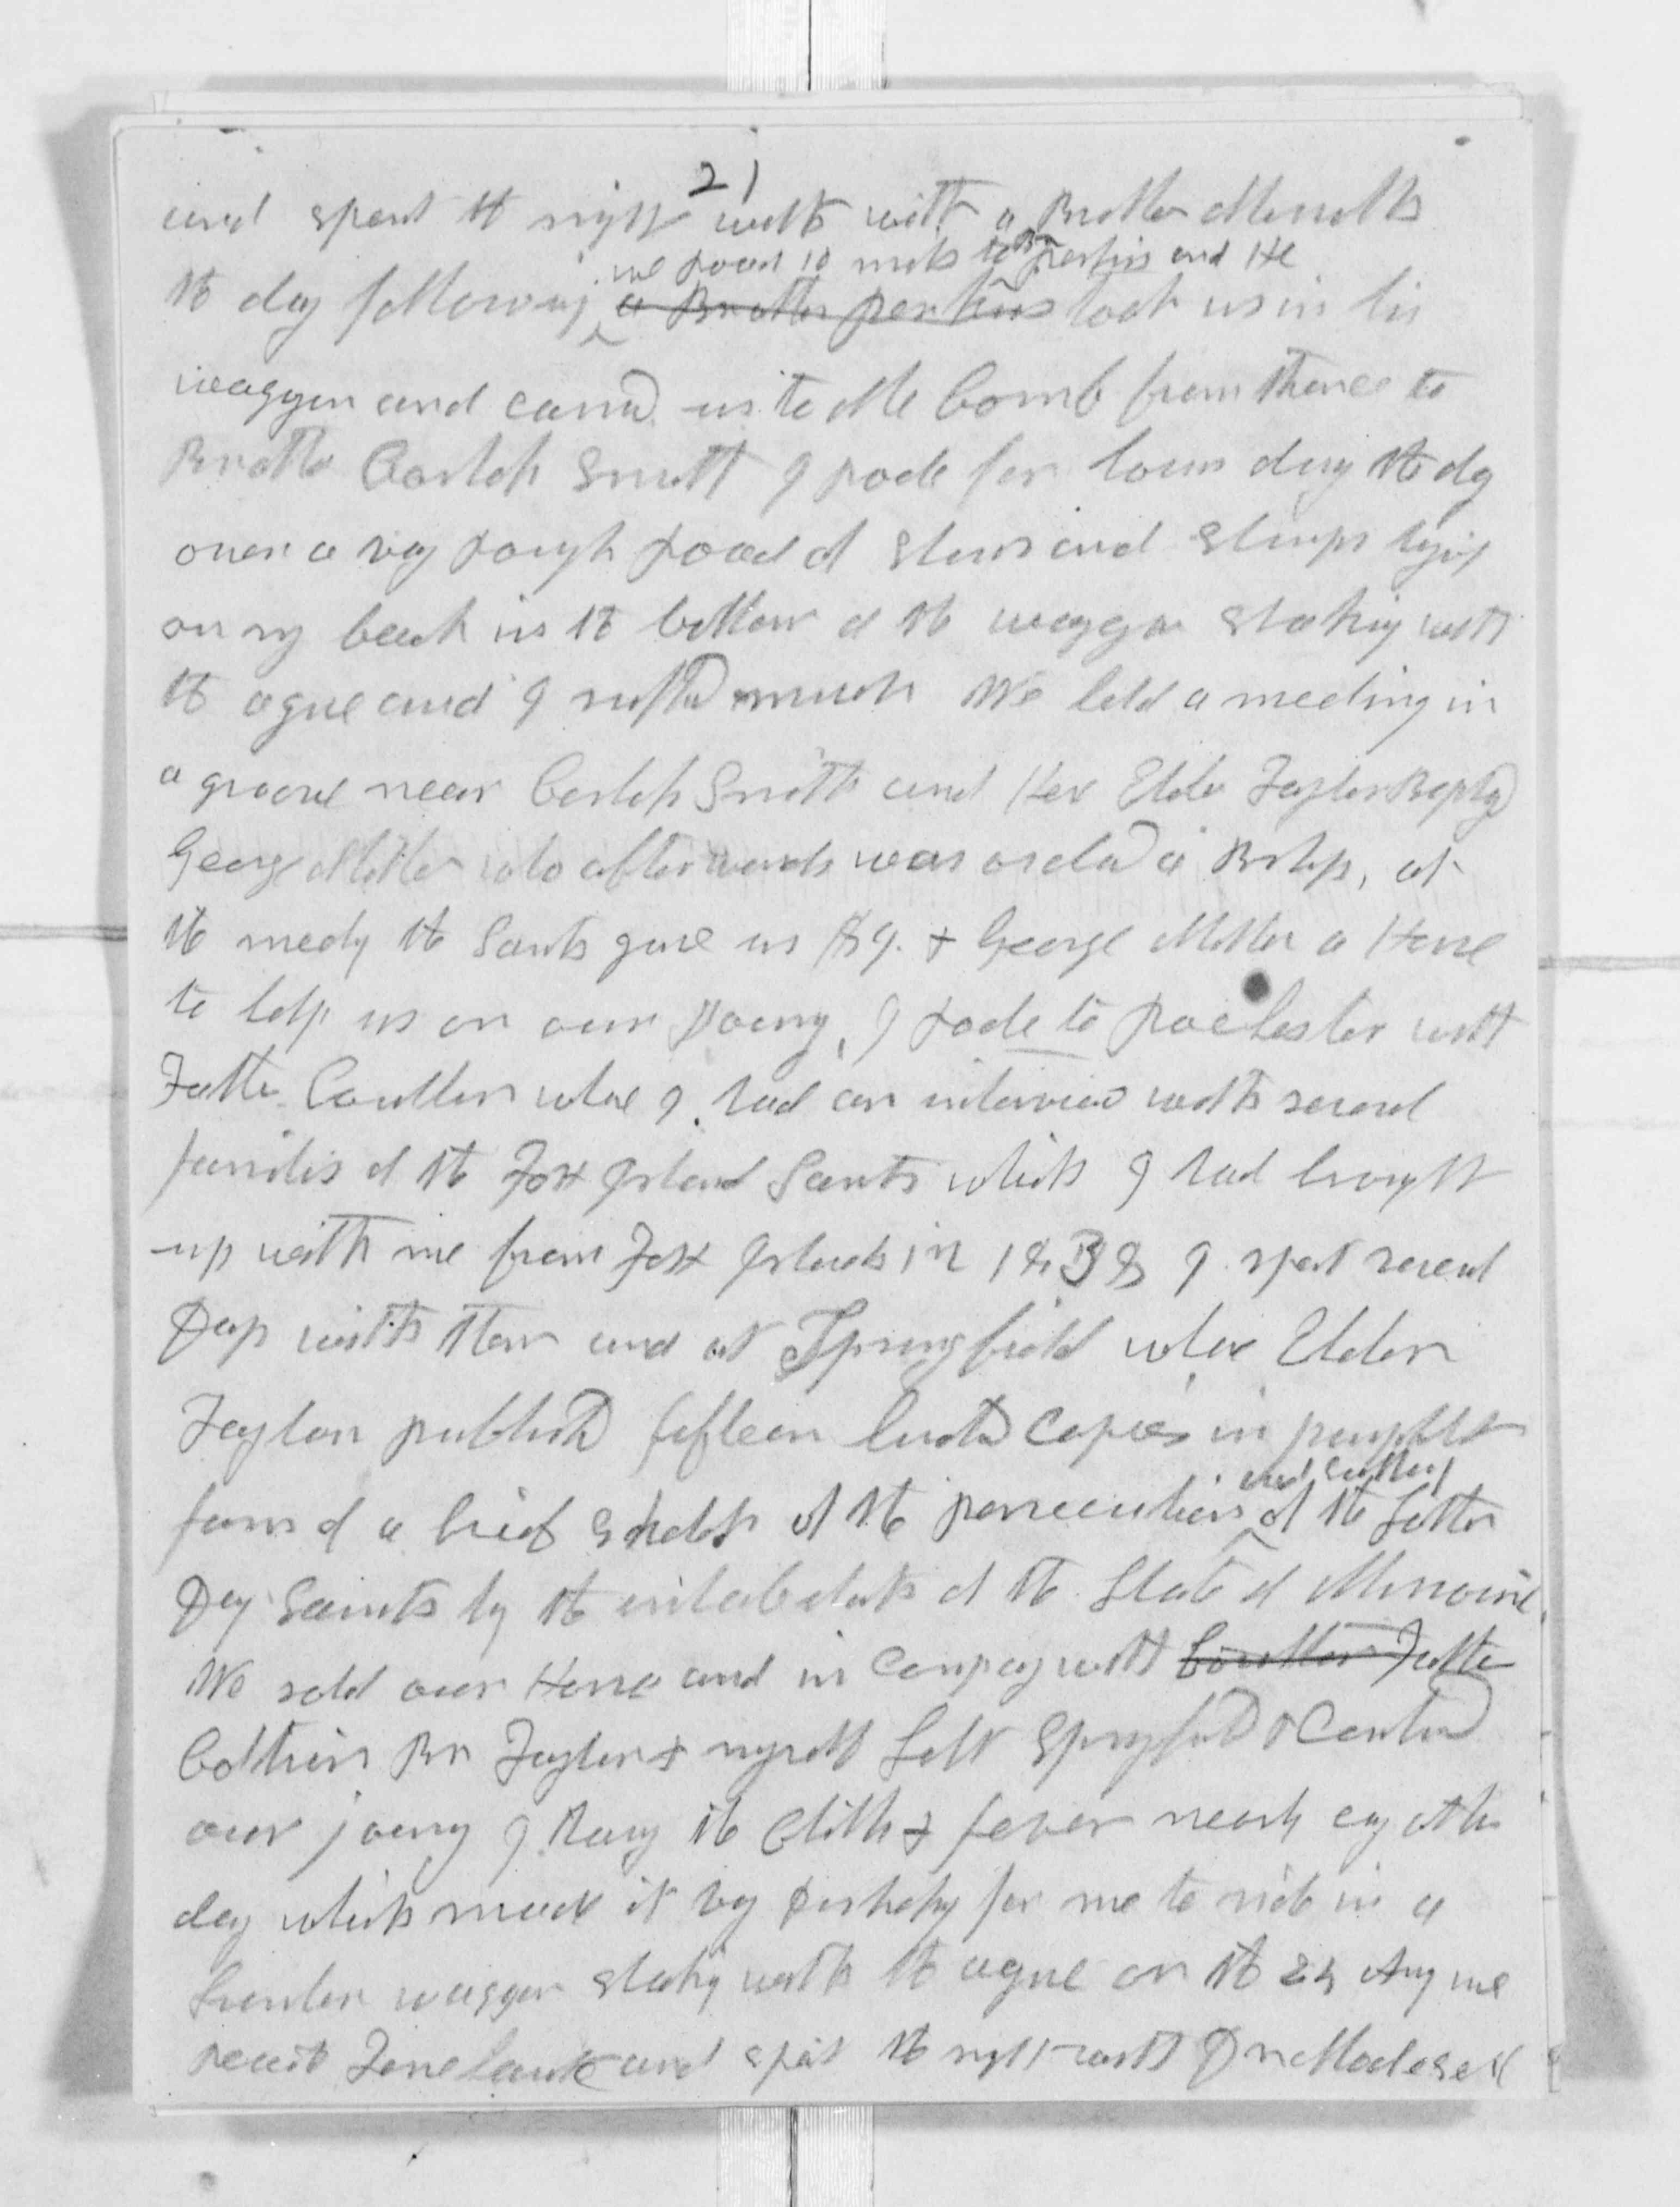 21
and spent the night with with a Brother Merrells
we road 10 miles to Br perkins and He
the day following a Brother perkins took us in his
waggon and carried us to Mc Comb from thence to
Brother Carloss Smith I rode for hours during the day
over a very rough road of stones and stumps lying
on my back in the bottom of the waggon shaking with
the ague and I suffered much We held a meeting in
a groove near Carloss Smith and Her Elder Taylor Baptized
George Miller who afterwards was ordaind a Bishop, at
the meeting the Saints gave us $9. & George Miller a Horse
to help us on our Journy, I rode to Rochester with
Father Coultrin whare I had an interview with several
families of the Fox Island Saints which I had brought
up with me from Fox Islands in 1838 I spent several
Days with them and at Springfield whare Elder
Taylor published fifteen hundred Copies in pamphlet
and suffering
form of a brief sketch of the persecutions of the Latter
Day Saints by the inhabitants of the State of Missouri.
We sold our Horse and in Company with Coultrin Father
Coltrin Br Taylor & myself left Springfield & Continued
our journy I Having the chills & fever nearly evry other
day which made it very distressing for me to ride in a
Lumber waggon shaking with the ague on the 24 Aug we
reached Terrehaute and spent the night with Dr Modesett